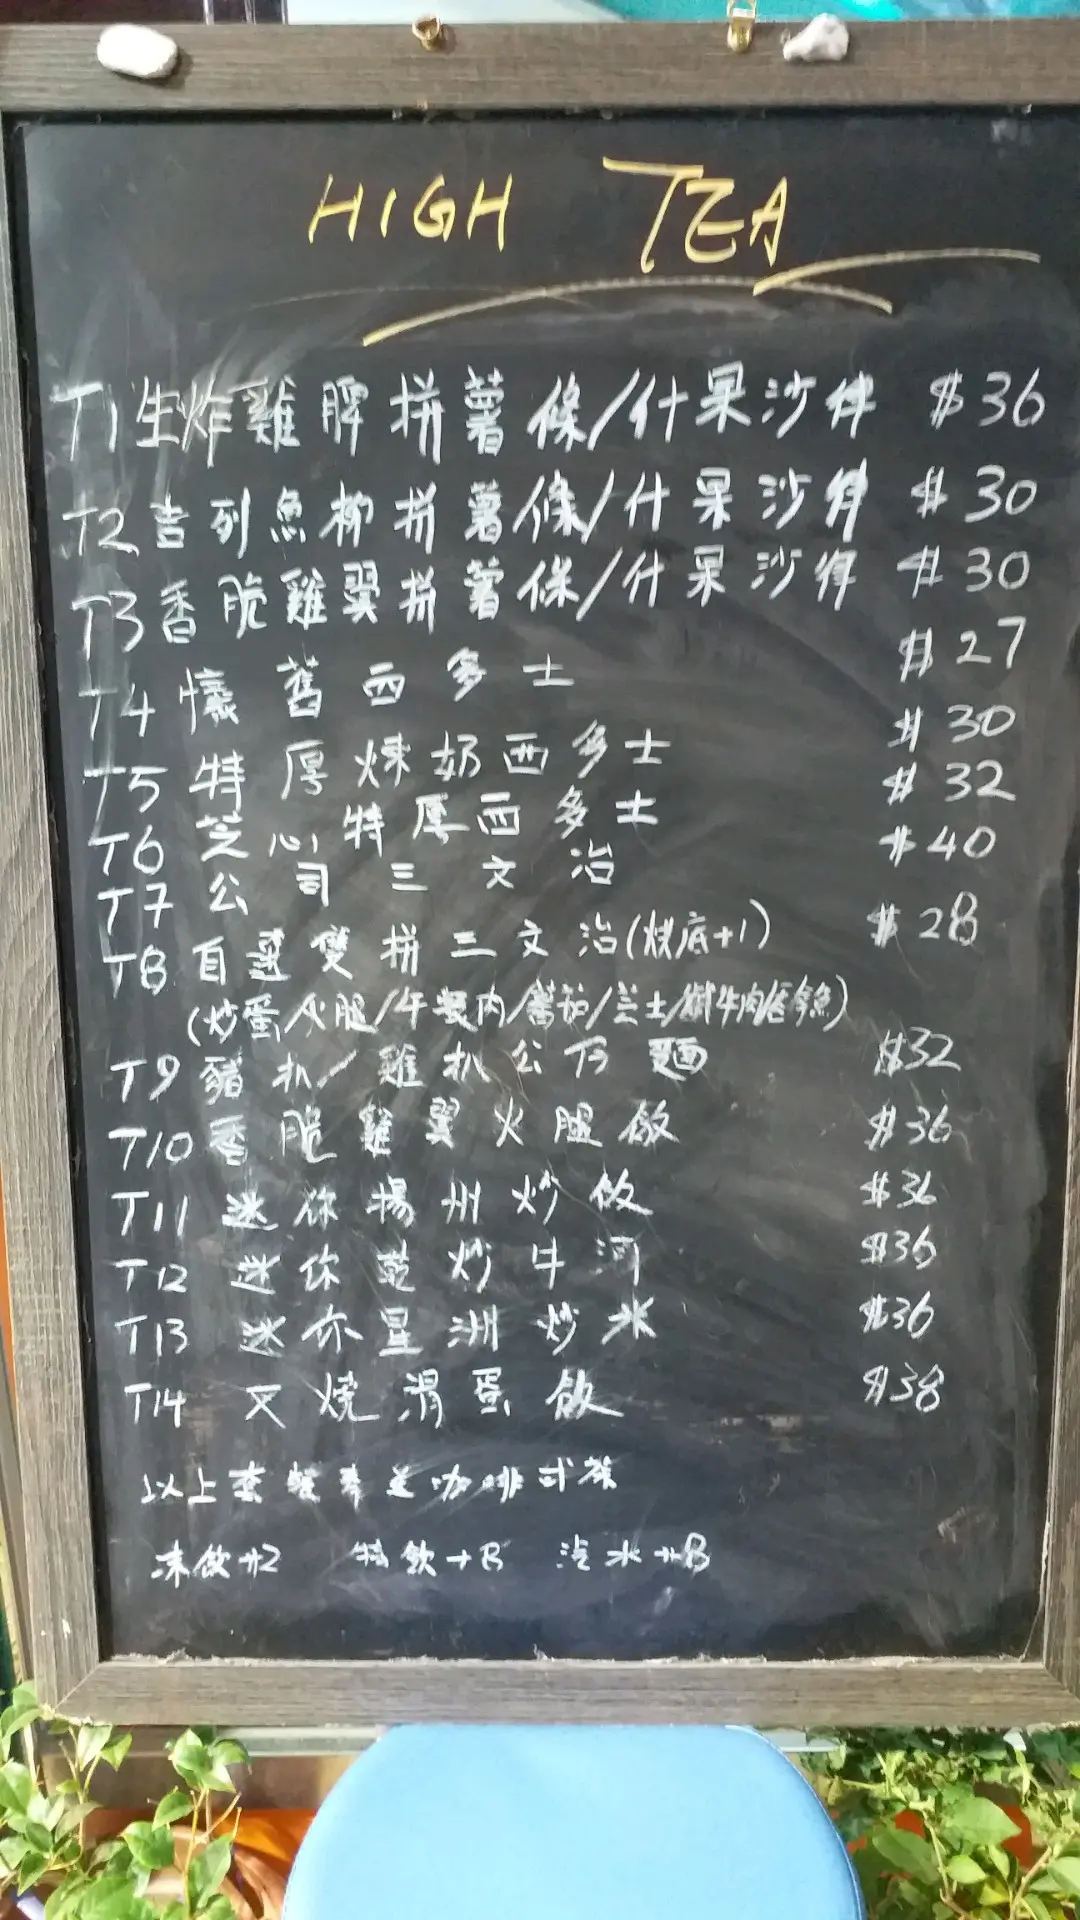 HIGH TEA
T1 生炸雞脾拼薯條/什果沙律 $36
T2 吉列魚柳拼薯條/什果沙律 $30
T3 香脆雞翼拼薯條/什果沙律 $30
T4 懷舊西多士 $27
T5 特厚煉奶西多士 $30
T6 芝心特厚西多士 $32
T7 公司三文治 $40
T8 自選雙拼三文治(烘底+1) $28
(炒蛋/火腿/午餐肉/蕃茄/芝士/鹹牛肉/吞拿魚)
T9 豬扒/雞扒公仔麵 $32
T10 香脆雞翼火腿飯 $36
T11 迷你揚州炒飯 $36
T12 迷你乾炒牛河 $36
T13 迷你星洲炒米 $36
T14 叉燒滑蛋飯 $38
以上套餐奉送咖啡或茶
凍飲+2 特飲+8 汽水+8